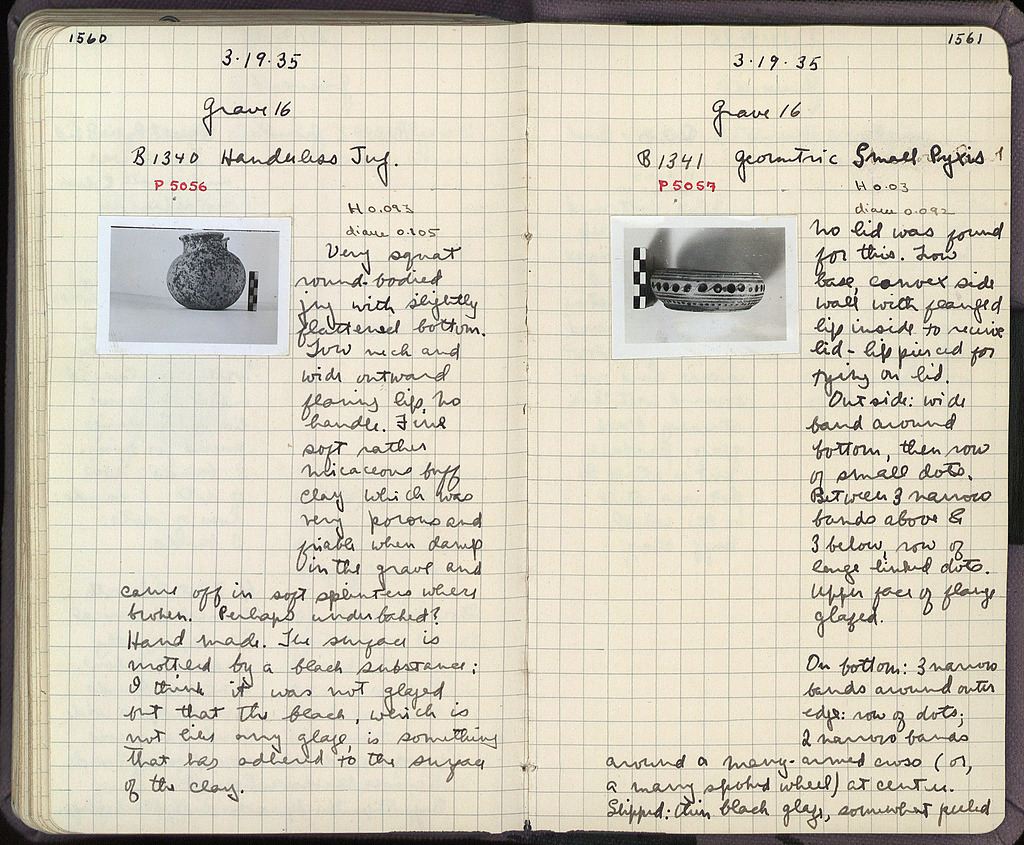 1560
3·19·35
Grave 16
B 1340 Handerless Jug.
P 5056
H 0.093
diam 0.105
Very squat
round-bodied
jug with slightly
flattened bottom.
Low neck and
wide outward
flaring lip, no
handle. Fine
soft rather
micaceous buff
clay which was
very porous and
friable when damp
in the grave and
came off in soft splinters where
broken. Perhaps underbaked?
Hand made. The surface is
mottled by a black substance:
I think it was not glazed
but that the black, which is
not like any glaze, is something
that has adhered to the surface
of the clay.
1561
3·19·35
Grave 16
B 1341 Geometric Small Pyxis
P 5057
H 0.03
diam 0.092
No lid was found
for this. Low
base, convex side
wall with flanged
lip inside to receive
lid - lip pierced for
tying on lid.
Outside: wide
band around
bottom, then row
of small dots.
Between 3 narrow
bands above &
3 below, row of
large linked dots.
Upper face of flange
glazed.
On bottom: 3 narrow
bands around outer
edge: row of dots;
2 narrow bands
around a many-armed cross (or,
a many spoked wheel) at center.
Slipped: thin black glaze, somewhat peeled